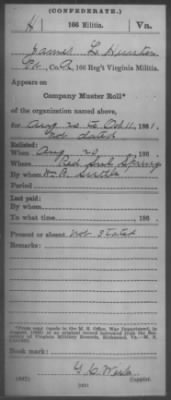 (CONFEDERATE.)
H 166 Militia. Va.
James L Hunter
Co. A, 166 Reg't Virginia Militia.
Appears on
Company Muster Roll*
of the organization named above,
for Aug 20 to Oct 11, 1861.
not dated
Enlisted:
When Aug 20, 186 .
Where Red Sul Spring
By whom Wm B. Suttle
Period
Last paid:
By whom
To what time , 186 .
Present or absent Not Stated
Remarks:
Book mark:
Copyist.